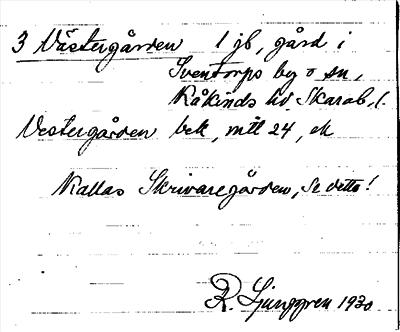 3 Västergården 1 jb, gård i
Sventorps by o sn,
Kåkinds hd. Skarab. l.
Vestergården bek, mtl 24, ek
Kallas Skrivaregården, Se detta!
R. Ljunggren 1930